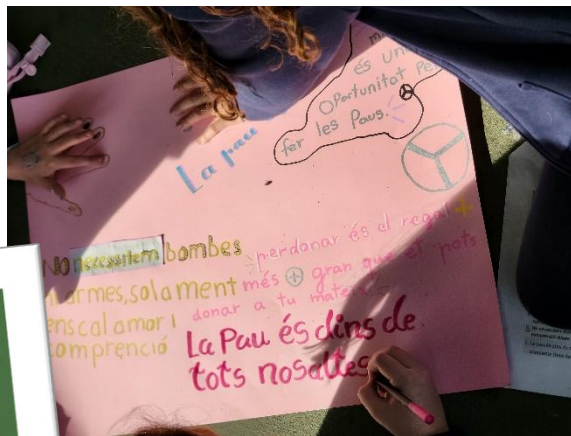 és un
Oportunitat per
fer les Paus.
La pau
No necessitem bombes
ni armes, solament
ens cal amor i
comprenció
perdonar és el regal
més gran que et pots
donar a tu mateix
La Pau és dins de
tots nosaltes